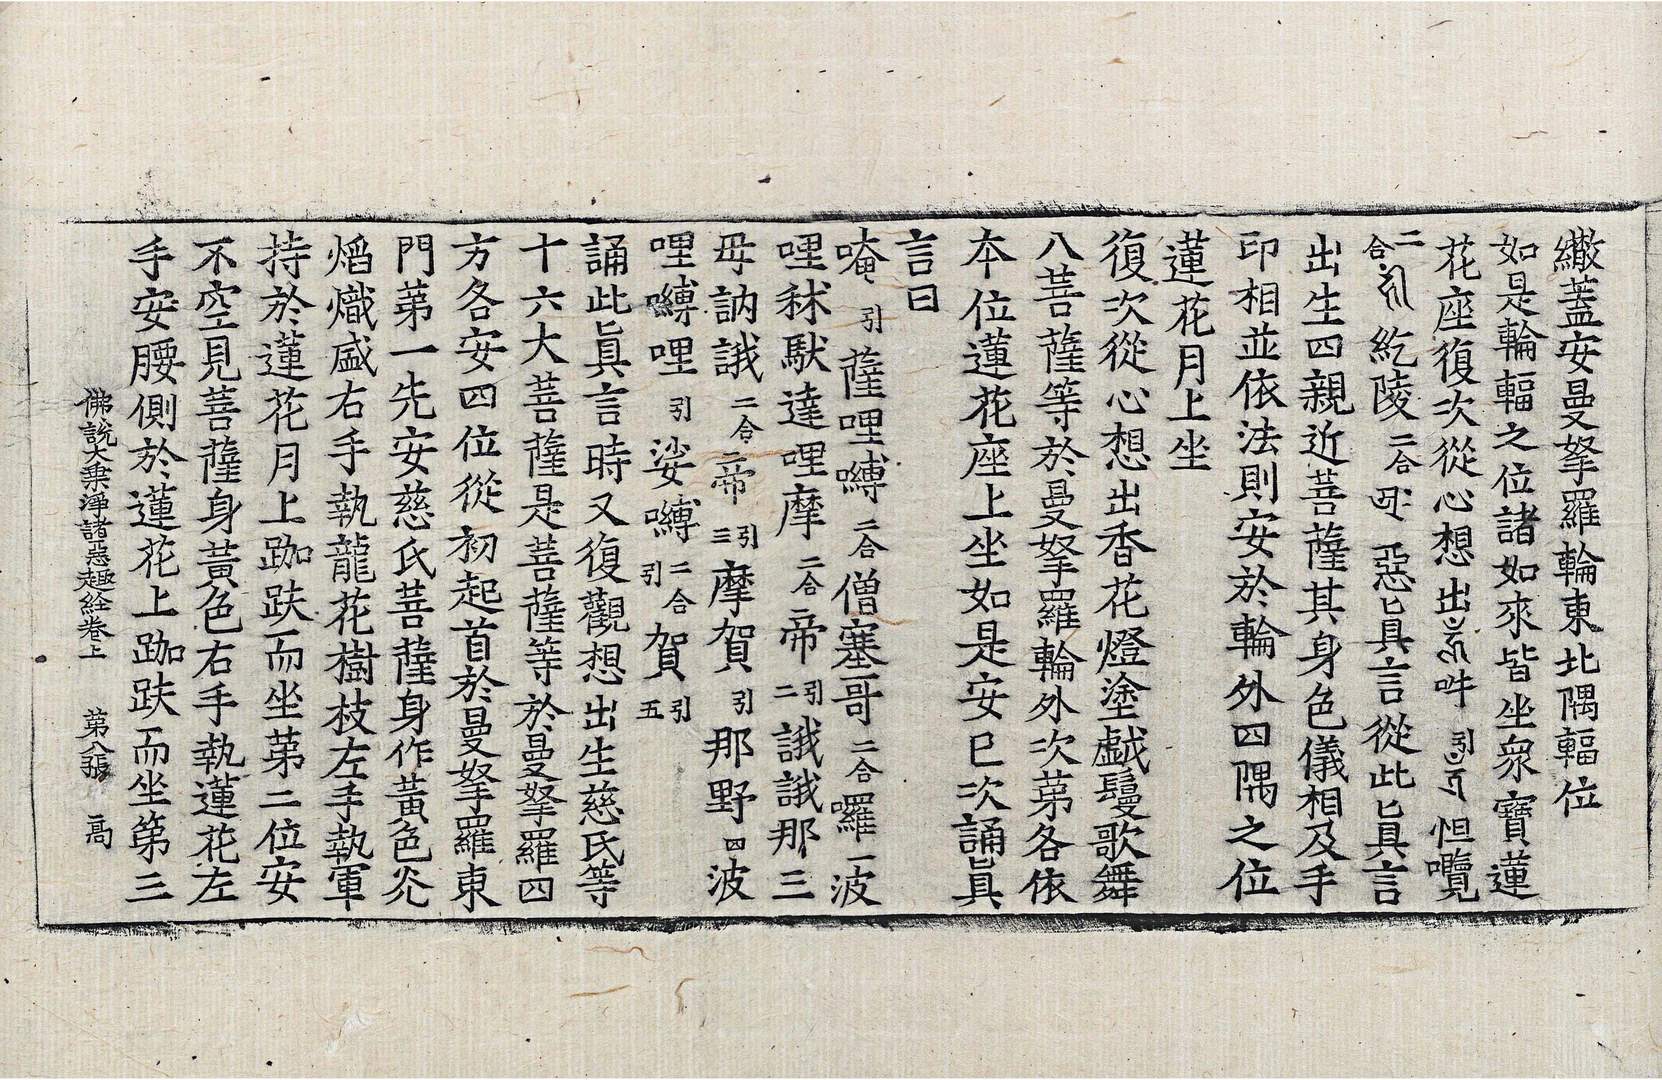 繖蓋安曼拏羅輪東北隅輻位
如是輪輻之位諸如來皆坐眾寶蓮
花座復次從心想出吽引怛㘕
二合紇陵二合惡眞言從此眞言
出生四親近菩薩其身色儀相及手
印相並依法則安於輪外四隅之位
蓮花月上坐
復次從心想出香花燈塗戯鬘歌舞
八菩薩等於曼拏羅輪外次第各依
本位蓮花座上坐如是安已次誦眞
言曰
唵引薩哩嚩二合僧塞哥二合囉一波
哩秫馱達哩摩二合帝引二誐誐那三
毋訥誐二合帝引三摩賀引那野四波
哩嚩哩引娑嚩二合引賀引五
誦此眞言時又復觀想出生慈氏等
十六大菩薩是菩薩等於曼拏羅四
方各安四位從初起首於曼拏羅東
門第一先安慈氏菩薩身作黃色光
熖熾盛右手執龍花樹枝左手執軍
持於蓮花月上跏趺而坐第二位安
不空見菩薩身黃色右手執蓮花左
手安腰側於蓮花上跏趺而坐第三
佛說大乘淨諸惡趣経卷上 第八張 高